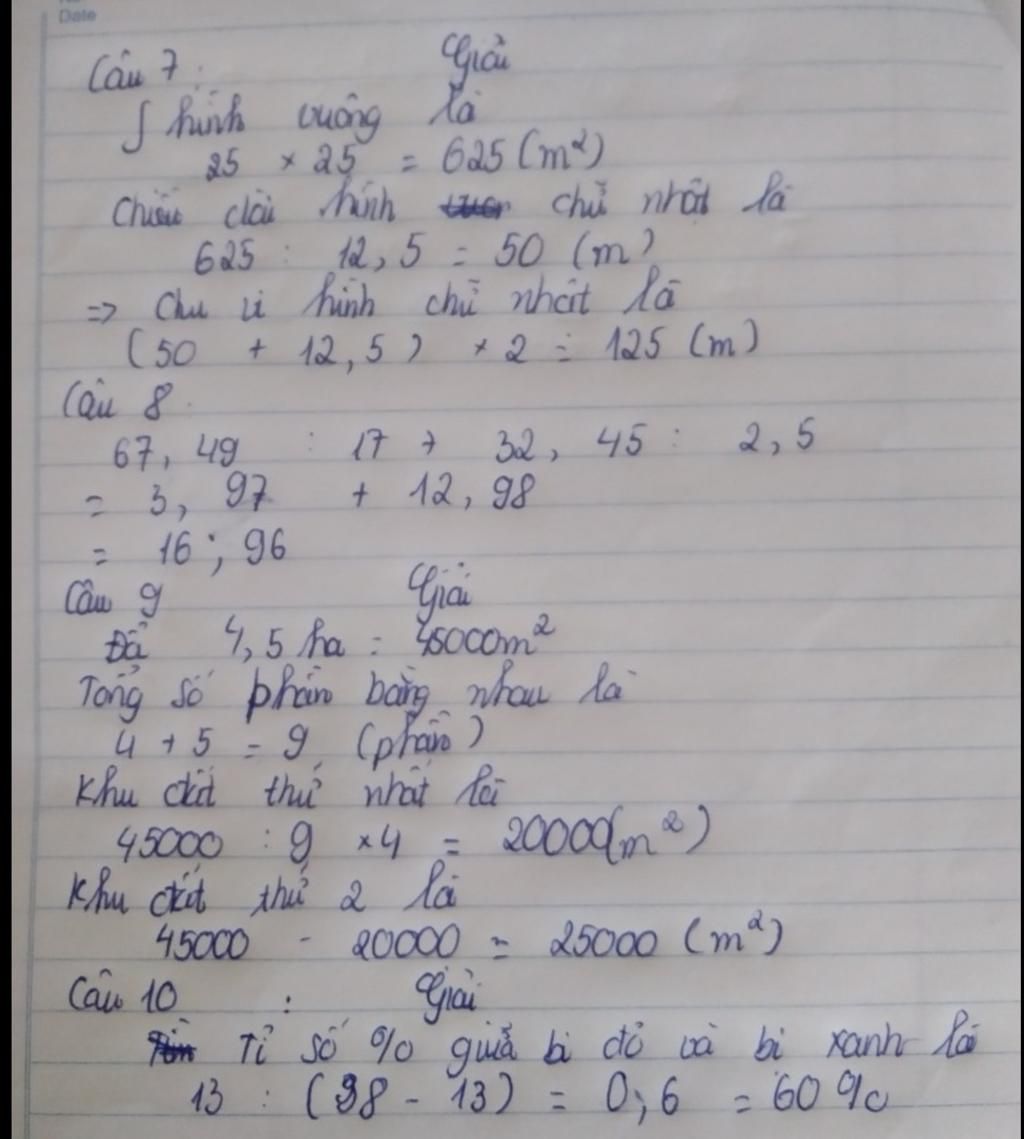 Date
Câu 7: Giải
S hình vuông là
25 × 25 = 625 (m²)
Chiều dài hình chữ nhật là
625 : 12,5 = 50 (m)
=> Chu vi hình chữ nhật là
(50 + 12,5) × 2 = 125 (m)
Câu 8.
67,49 : 17 + 32,45 : 2,5
= 3,97 + 12,98
= 16,96
Câu 9 Giải
Đổi 4,5 ha = 45000m²
Tổng số phần bằng nhau là
4 + 5 = 9 (phần)
Khu đất thứ nhất là
45000 : 9 × 4 = 20000(m²)
Khu đất thứ 2 là
45000 - 20000 = 25000 (m²)
Câu 10 : Giải
Tỉ số % giữa bi đỏ và bi xanh là
13 : (98 - 13) = 0,6 = 60%